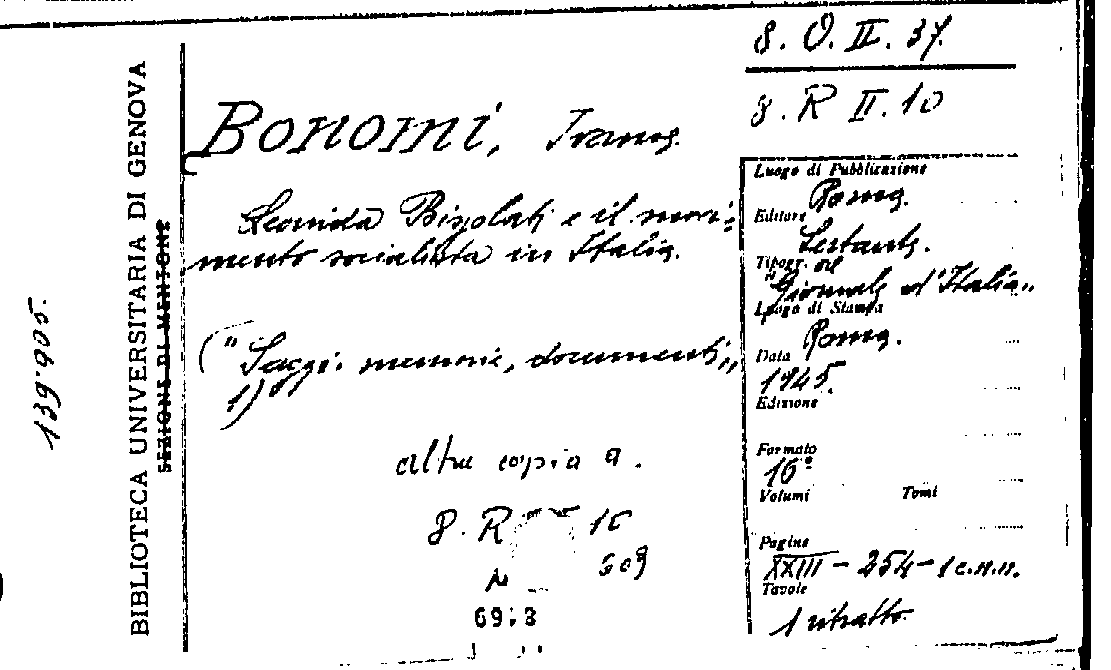 8. O. II. 37.
8. R II. 10
BIBLIOTECA UNIVERSITARIA DI GENOVA
SEZIONE DI MENTONE
139.905.
Bonomi, Ivanoe.
Leonida Bissolati e il movi-
mento socialista in Italia.
("Saggi. memorie, documenti",
1)
altra copia a.
8. R
Luogo di Pubblicazione
Roma.
Editore
Sestante.
Tipogr. del
"Giornale d'Italia"
Luogo di Stampa
Roma.
Data
1945.
Edizione
Formato
16°
Volumi Tomi
Pagine
XXIII - 254 - 1 c.n.n.
Tavole
1 ritratto.